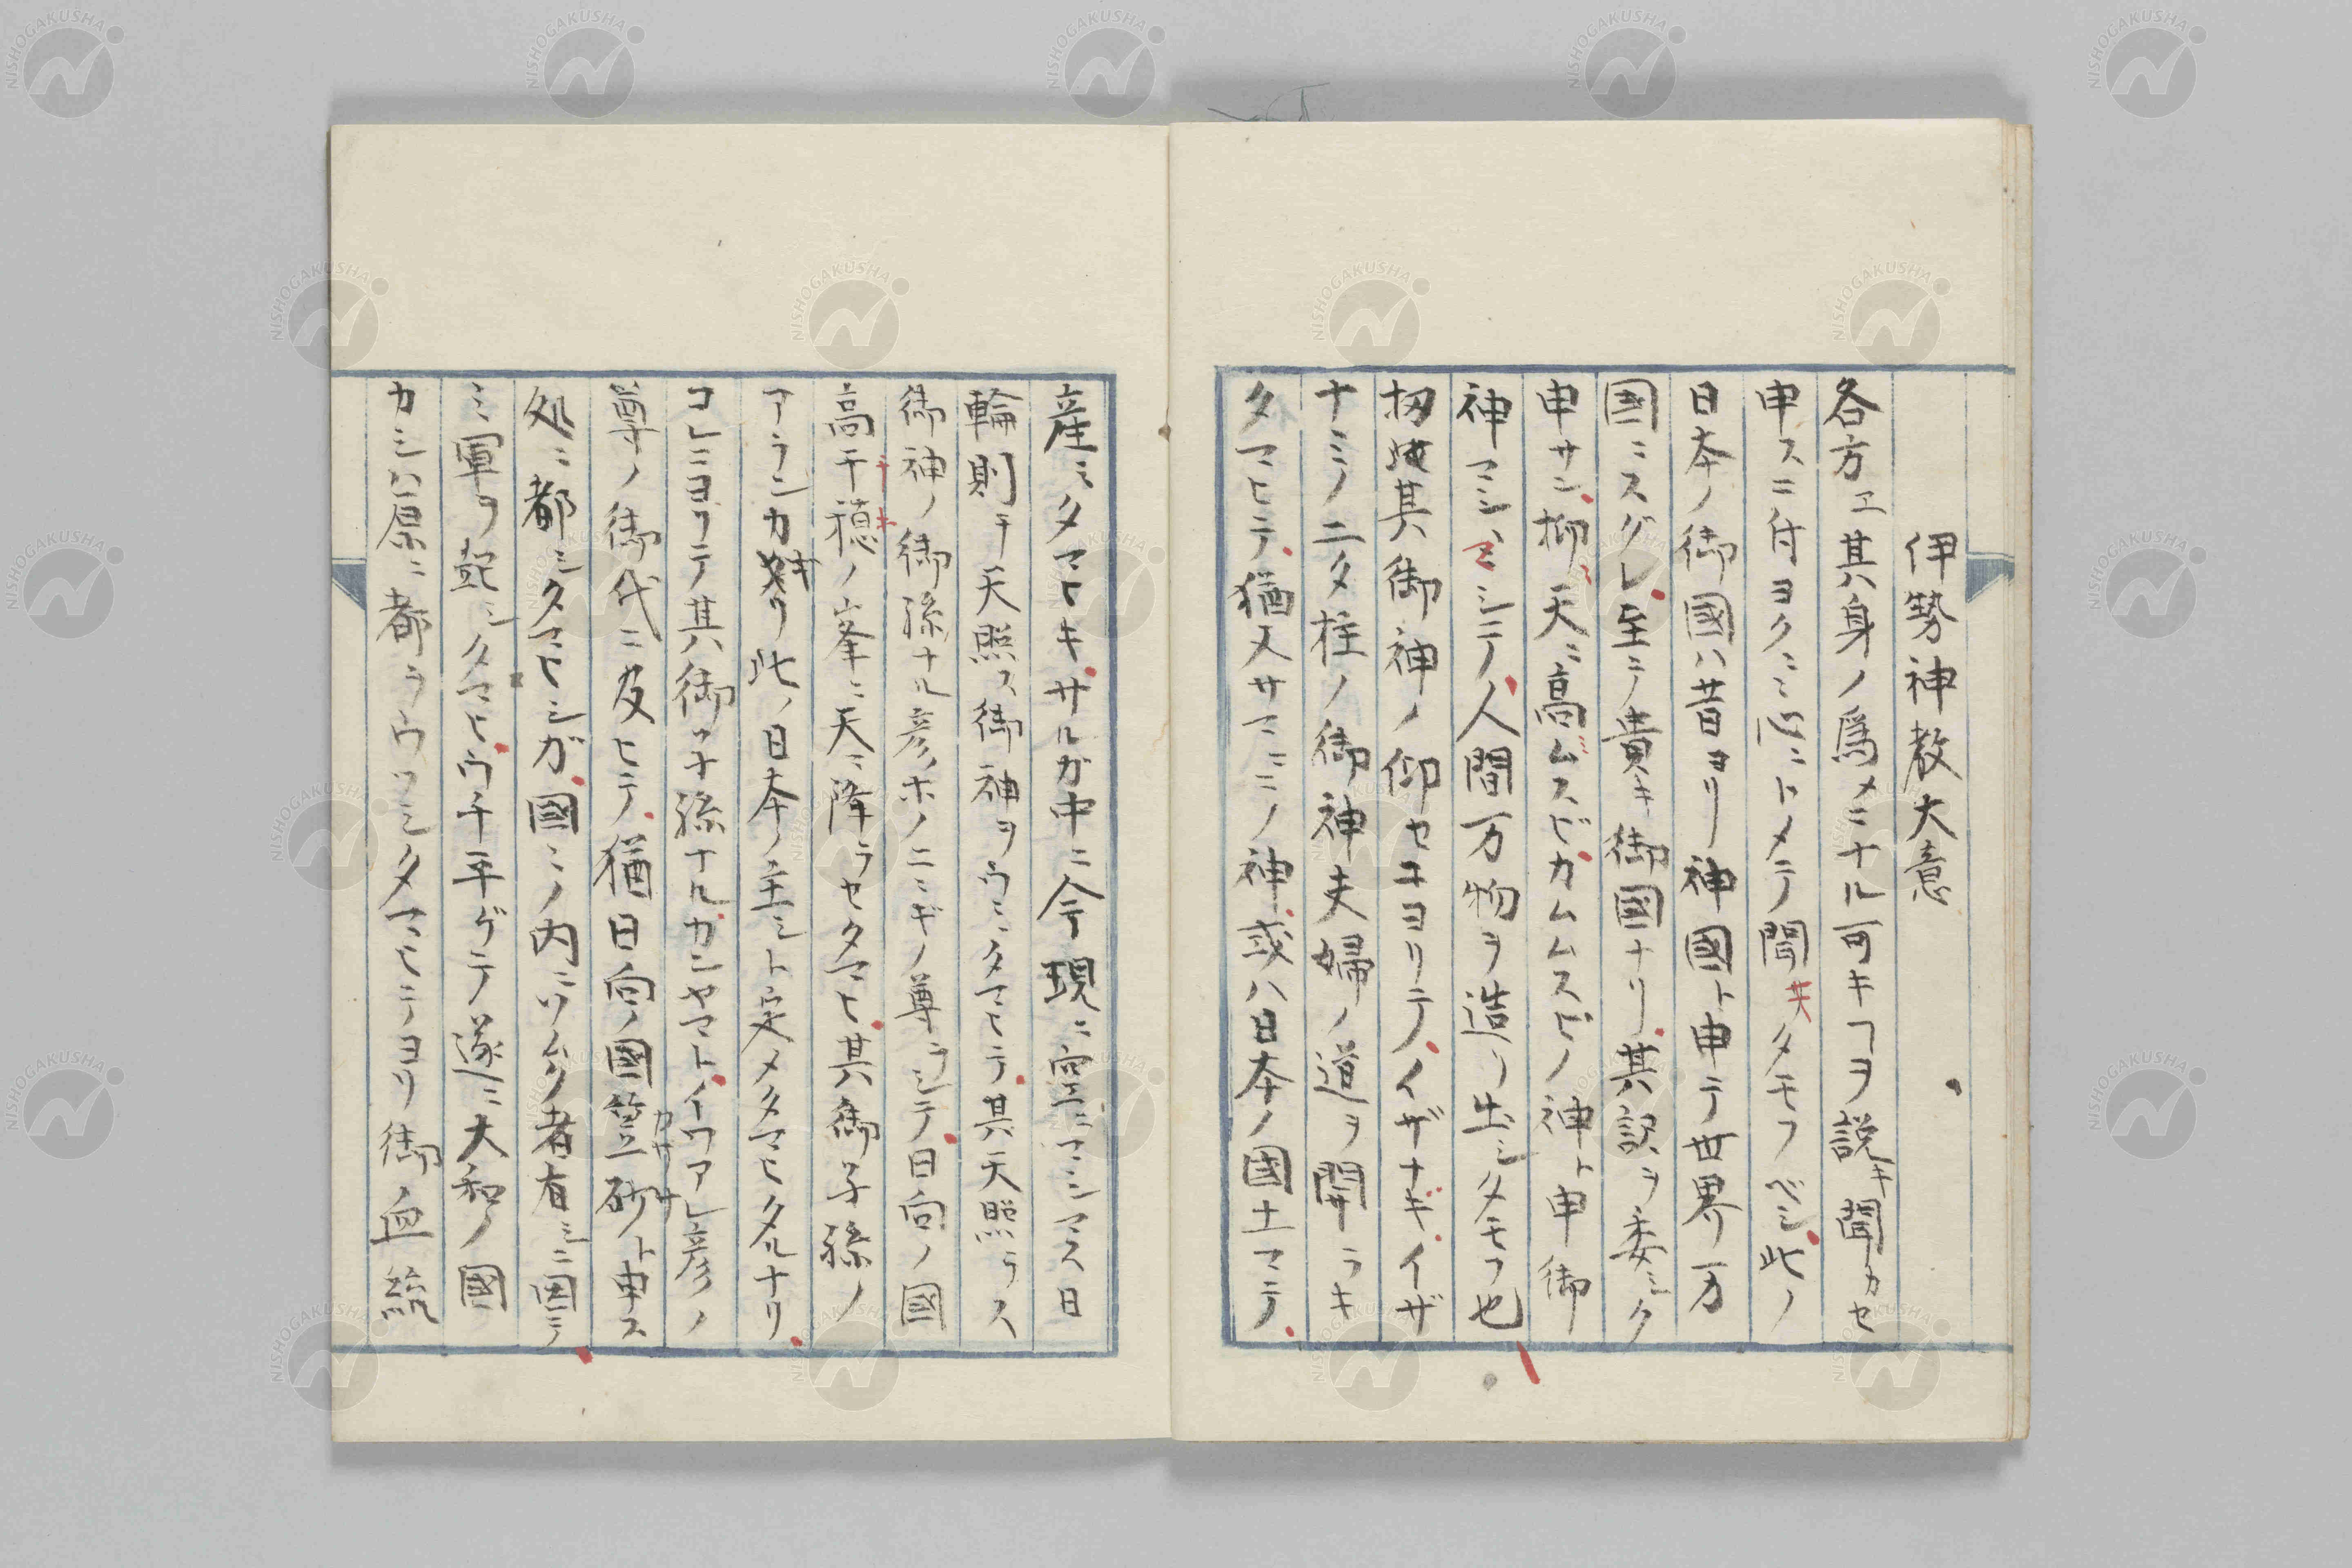 伊勢神教大意
各方エ其身ノ爲メニナル可キヿヲ説キ聞カセ
申スニ付ヨクミ心ニトメテ聞キタモフベシ此ノ
日本ノ御國ハ昔ヨリ神國ト申テ世界万
國ニスグレ至テ貴キ御國ナリ其訳ヲ委シク
申サン抑天ニ高ムスビカムムスビノ神ト申御
神マシマシテ人間万物ヲ造リ出シタモフ也
扨其御神ノ仰セヨリテイザナギイザ
ナミノ二タ柱ノ御神夫婦ノ道ヲ開ラキ
タマヒテ猶又サマミノ神或ハ日本ノ國土マテ
産ミタマヒキサルガ中ニ今現ニ空ニマシマス日
輪則チ天照ス御神ヲウミタマヒテ其天照ラス
御神ノ御孫ナル彦ホノニニギノ尊ラシテ日向ノ國
高千穂ノ峯ニ天降ラセタマヒ其御子孫ノ
アランカキリ此ノ日本ノ主シト定メタマヒタルナリ
コレニヨリテ其御子孫ナルカンヤマトイワアレ彦ノ
尊ノ御代ニ及ヒテ猶日向ノ國笠砂ト申ス
カササ
処ニ都シタマヒシガ國ミノ内ニワルリ者有シニ因テ
ミ軍ヲ起シタマヒウチ平ゲテ遂ニ大和ノ國
カシハ原ニ都ラウツシタマヒテヨリ御血統
NISHOGAKUSHA